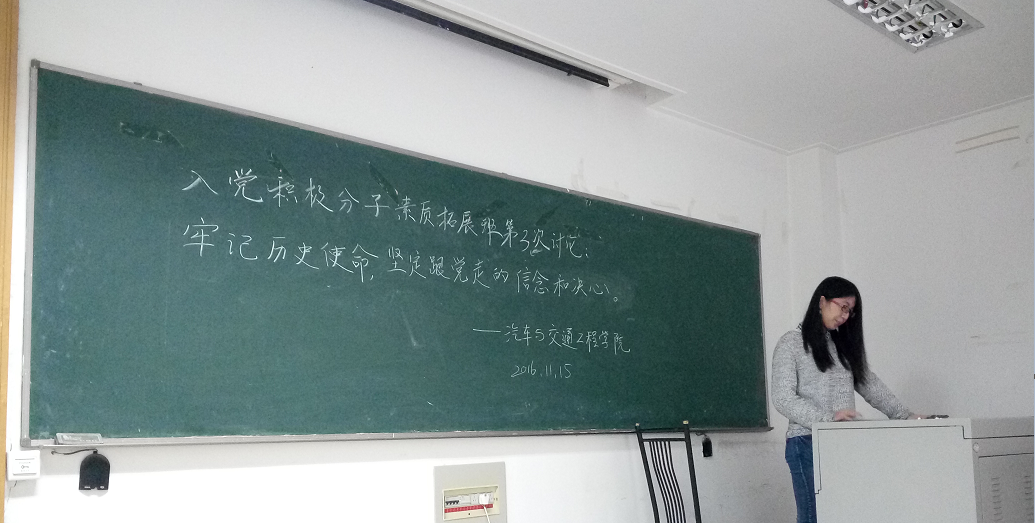 入党积极分子素质拓展班第3次讨论:
牢记历史使命,坚定跟党走的信念和决心。
——汽车与交通工程学院
2016.11.15